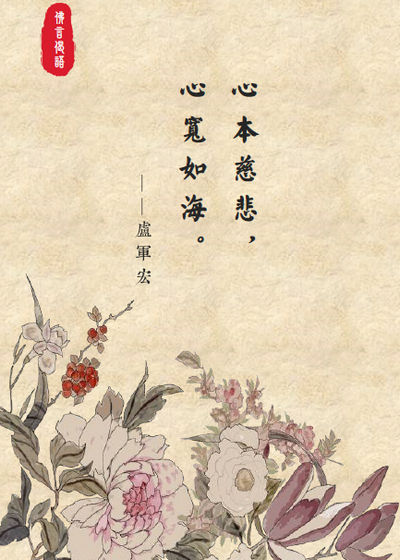 心本慈悲，
心寬如海。
——盧軍宏
佛言偈語